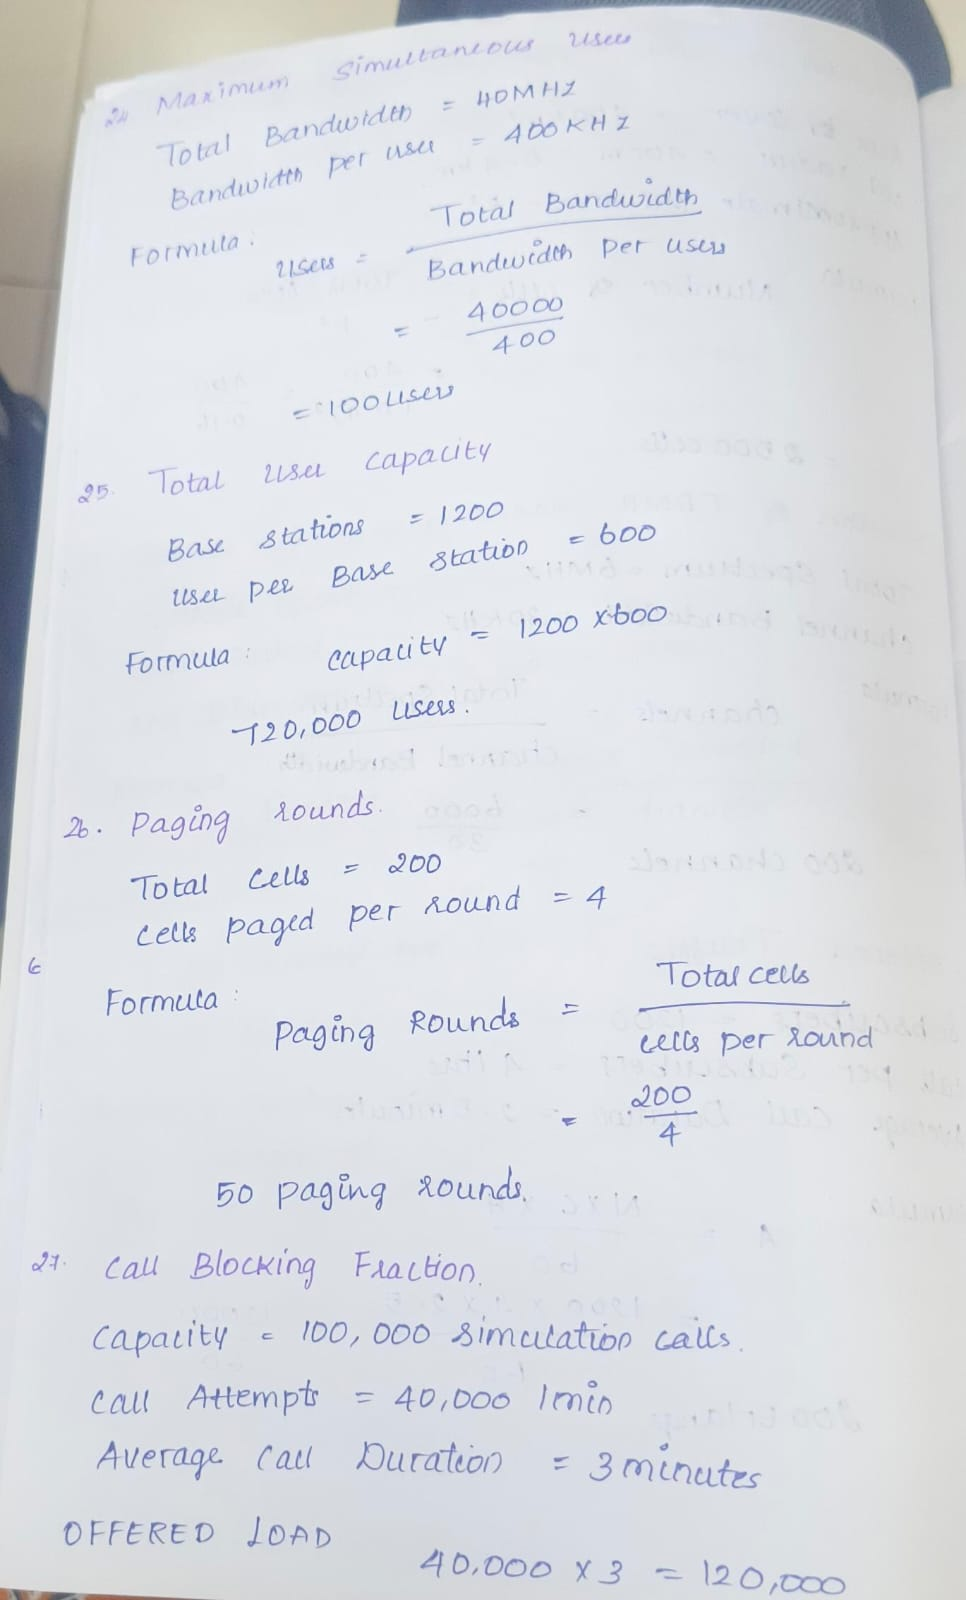 24 Maximum Simultaneous users
Total Bandwidth = 40MHZ
Bandwidth per user = 400KHZ
Formula:
Users = Total Bandwidth
Bandwidth per users
= 40000
400
= 100 users
25. Total user capacity
Base stations = 1200
user per Base station = 600
Formula: capacity = 1200 x 600
720,000 users.
26. Paging rounds.
Total cells = 200
cells paged per round = 4
Formula:
Paging Rounds = Total cells
cells per round
= 200
4
50 paging rounds.
27. Call Blocking Fraction.
capacity = 100,000 simulation calls.
call Attempts = 40,000 /min
Average call Duration = 3 minutes
OFFERED LOAD
40,000 x 3 = 120,000